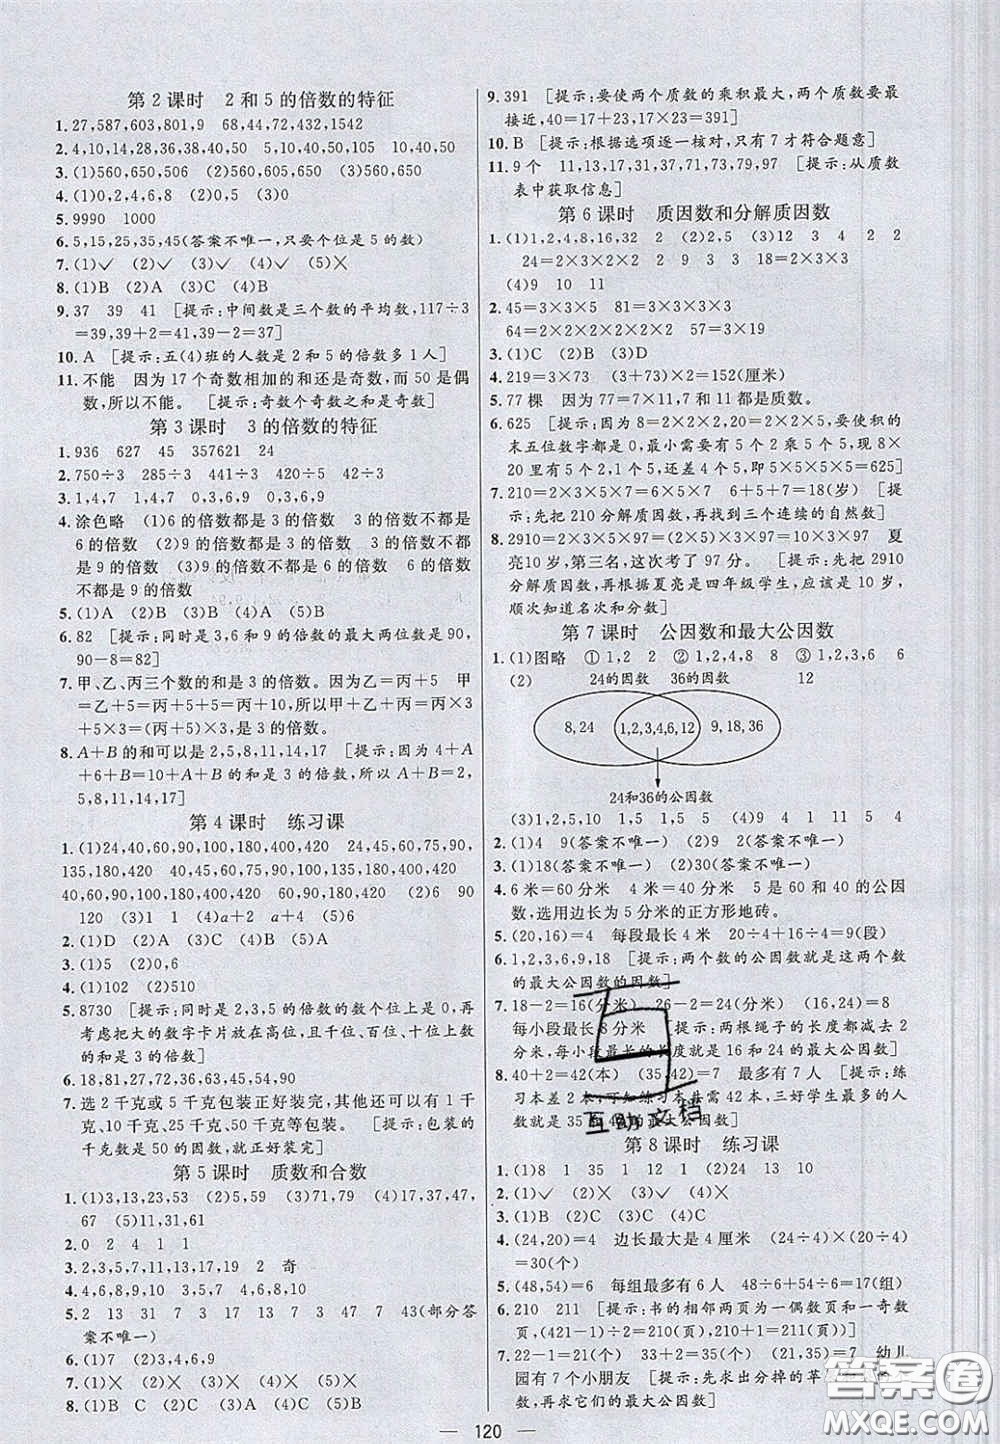 第2课时 2和5的倍数的特征
1. 27,587,603,801,9 68,44,72,432,1542
2. 4,10,14,28,36,38,40,50 5,10,40,45,50 10,40,50
3. (1)560,604,650 (2)560,605,650 (3)560,650
4. (1)0,2,4,6,8 (2)0,5 (3)0
5. 9990 1000
6. 5,15,25,35,45(答案不唯一,只要个位是5的数)
7. (1)✓ (2)✕ (3)✓ (4)✓ (5)✕
8. (1)B (2)A (3)C (4)B
9. 37 39 41 [提示:中间数是三个数的平均数,117÷3
=39,39+2=41,39-2=37]
10. A [提示:五(4)班的人数是2和5的倍数多1人]
11. 不能 因为17个奇数相加的和还是奇数,而50是偶
数,所以不能。[提示:奇数个奇数之和是奇数]
第3课时 3的倍数的特征
1. 936 627 45 357621 24
2. 750÷3 285÷3 441÷3 420÷5 42÷3
3. 1,4,7 0,3,6,9 0,3,6,9
4. 涂色略 (1)6的倍数都是3的倍数 3的倍数不都是
6的倍数 (2)9的倍数都是3的倍数 3的倍数不都
是9的倍数 (3)9的倍数不都是6的倍数 6的倍数
不都是9的倍数
5. (1)A (2)B (3)C (4)A
6. 82 [提示:同时是3,6和9的倍数的最大两位数是90,
90-8=82]
7. 甲、乙、丙三个数的和是3的倍数。因为乙=丙+5 甲
=乙+5=丙+5+5=丙+10。所以甲+乙+丙=丙
+10+丙+5+丙=3×丙+15,是3的倍数。
8. A+B的和可以是2,5,8,11,14,17 [提示:因为4+A
+6+B=10+A+B的和是3的倍数,所以A+B=2,
5,8,11,14,17]
第4课时 练习课
1. (1)24,40,60,90,100,180,400,420 24,45,60,75,90,
135,180,420 40,45,60,75,90,100,135,180,400,420
40,60,90,100,180,400,420 60,90,180,420 (2)6 90
120 (3)1 1 (4)a+2 a+4 (5)6
2. (1)D (2)A (3)C (4)B (5)A
3. (1)A (2)C
4. (1)102 (2)510
5. 8730 [提示:同时是2,3,5的倍数个位上是0,再
考虑把大的数字卡片放在高位,且千位、百位、十位上数
的和是3的倍数]
6. 18,81,27,72,36,63,45,54,90
7. 选2千克或5千克包装正好装完,其他还可以有1千
克、10千克、25千克、50千克等包装。[提示:包装的
千克数是50的因数,就正好装完]
第5课时 质数和合数
1. (1)3,13,23,53 (2)59,71 (3)29,41 (4)17,37,47,
67 (5)11,31,61
2. 0 2 4 1
3. 2,3,5,7,11,13,17,19 2 奇
4. 3,6,9,10 4,6,8,9,10
5. 2 13 31 7 3 17 13 7 47 7 43(部分答
案不唯一)
6. (1)7 (2)3,4,6,9
7. (1)✕ (2)✕ (3)✕ (4)✓ (5)✕
8. (1)B C (2)A (3)C (4)D (5)C
9. 391 [提示:要使两个质数的乘积最大,两个质数要最
接近,40=17+23,17×23=391]
10. B [提示:根据选项逐一核对,只有7才符合题意]
11. 9个 11,13,17,31,37,71,73,79,97 [提示:从质数
表中获取信息]
第6课时 质因数和分解质因数
1. (1)1,2,4,8,16,32 2 (2)2,5 (3)12 3 4 2 2
24=2×3×2×2 2 9 3 3 18=2×3×3
(4)9 10 11
2. 45=3×3×5 81=3×3×3×3
64=2×2×2×2×2×2 57=3×19
3. (1)C (2)B (3)D
4. 219=3×73 (3+73)×2=152(厘米)
5. 77棵 因为77=7×11,7和11都是质数。
6. 625 [提示:8=2×2×2,20=2×2×5,要使积的
末五位数字都是0,最少需要5个2乘5个5,而8×
20里有5个2,1个5,还差4个5,即5×5×5×5=625]
7. 210=2×3×5×7=6×5×7 6+5+7=18(岁) [提
示:先把210分解质因数,再找到三个连续的自然数]
8. 2910=2×3×5×97=(2×5)×3×97=10×3×97 夏
亮10岁,第三名,这次考了97分。[提示:先把2910
分解质因数,再根据夏亮是四年级学生,应该是10岁,
顺次知道名次和分数]
第7课时 公因数和最大公因数
1. (1)图略 ①1,2 2 ②1,2,4,8 8 ③1,2,3,6 6
(2) 24的因数 36的因数 12
8,24 1,2,3,4,6,12 9,18,36
24和36的公因数
(3)1,2,5,10 1,5 1,5 5 (4)9 4 1 11 5 1
2. (1)4 9(答案不唯一) (2)4 8(答案不唯一)
3. (1)18(答案不唯一) (2)30(答案不唯一)
4. 6米=60分米 4米=40分米 5是60和40的公因
数,选用边长为5分米的正方形地砖。
5. (20,16)=4 每段最长4米 20÷4+16÷4=9(段)
6. 1,2,3,6,9,18 [提示:两个数的公因数就是这两个数
的最大公因数的因数]
7. 18-2=16(分米) 26-2=24(分米) (16,24)=8
每小段最长8分米 [提示:两根绳子的长度都减去2
分米,每小段最长的长度就是16和24的最大公因数]
8. 40+2=42(本) (35,42)=7 最多有7人 [提示:练
习本差2本,可知练习本共需42本,三好学生最多的人
数就是35和42的最大公因数]
互助文档
第8课时 练习课
1. (1)8 1 35 1 12 1 (2)24 13 10
2. (1)✓ (2)✕ (3)✕ (4)✕
3. (1)B (2)C (3)C (4)C
4. (24,20)=4 边长最大是4厘米 (24÷4)×(20÷4)
=30(个)
5. (48,54)=6 每组最多有6人 48÷6+54÷6=17(组)
6. 210 211 [提示:书的相邻两页为一偶数页和一奇数
页,(421-1)÷2=210(页),(421+1)÷2=211(页)]
7. 22-1=21(个) 33+2=35(个) (21,35)=7 幼儿
园有7个小朋友 [提示:先求出分掉的苹
数,再求它们的最大公因数]
答案圈
MXQE.COM
— 120 —